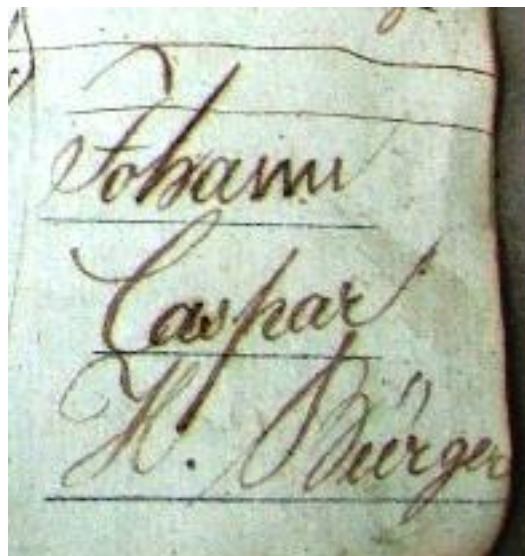 Johann
Caspar
H. Bürger